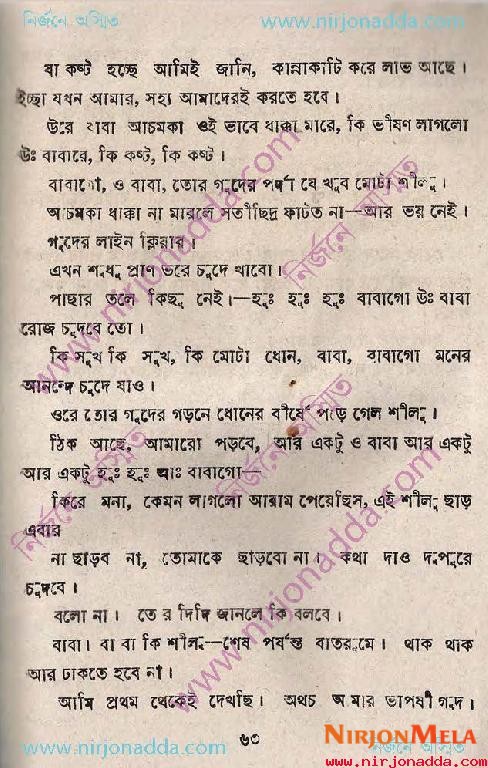 নির্জনে অস্মিত www.nirjonadda.com
যা কষ্ট হচ্ছে আমিই জানি, কান্নাকাটি করে লাভ আছে।
ইচ্ছা যখন আমার, সহ্য আমাদেরই করতে হবে।
উরে বাবা আচমকা ওই ভাবে ধাক্কা মারে, কি ভীষণ লাগলো
উঃ বাবারে, কি কষ্ট, কি কষ্ট।
বাবাগো, ও বাবা, তোর গুদের পর্দা যে খুব মোটা শীলু।
আচমকা ধাক্কা না মারলে সতীছিদ্র ফাটত না—আর ভয় নেই।
গুদের লাইন ক্লিয়ার।
এখন শুধু প্রাণ ভরে চুদে যাবো।
পাছার তলে কিছু নেই।—হুঃ হুঃ হুঃ বাবাগো উঃ বাবা
রোজ চুদবে তো।
কি সুখ কি সুখ, কি মোটা ধোন, বাবা, বাবাগো মনের
আনন্দে চুদে যাও।
ওরে তোর গুদের গড়নে ধোনের বীর্য পড়ে গেল শীলু।
ঠিক আছে, আমারো পড়বে, আর একটু ও বাবা আর একটু
আর একটু হুঃ হুঃ আঃ বাবাগো—
কিরে মনা, কেমন লাগলো আরাম পেয়েছিস, এই শীলু ছাড়
এবার
না ছাড়ব না, তোমাকে ছাড়বো না। কথা দাও দুপুরে
চুদবে।
বলো না। তোর দিদি জানলে কি বলবে।
বাবা। বাবা কি শীলু—শেষ পর্যন্ত বাতরুমে। থাক থাক
আর ঢাকতে হবে না।
আমি প্রথম থেকেই দেখছি। অথচ আমার গুদ।
৬৩
www.nirjonadda.com
নির্জনে অস্মিত
NIRJONMELA
www.nirjonadda.com
www.nirjonadda.com
নির্জনে অস্মিত
www.nirjonadda.com
নির্জনে অস্মিত
www.nirjonadda.com